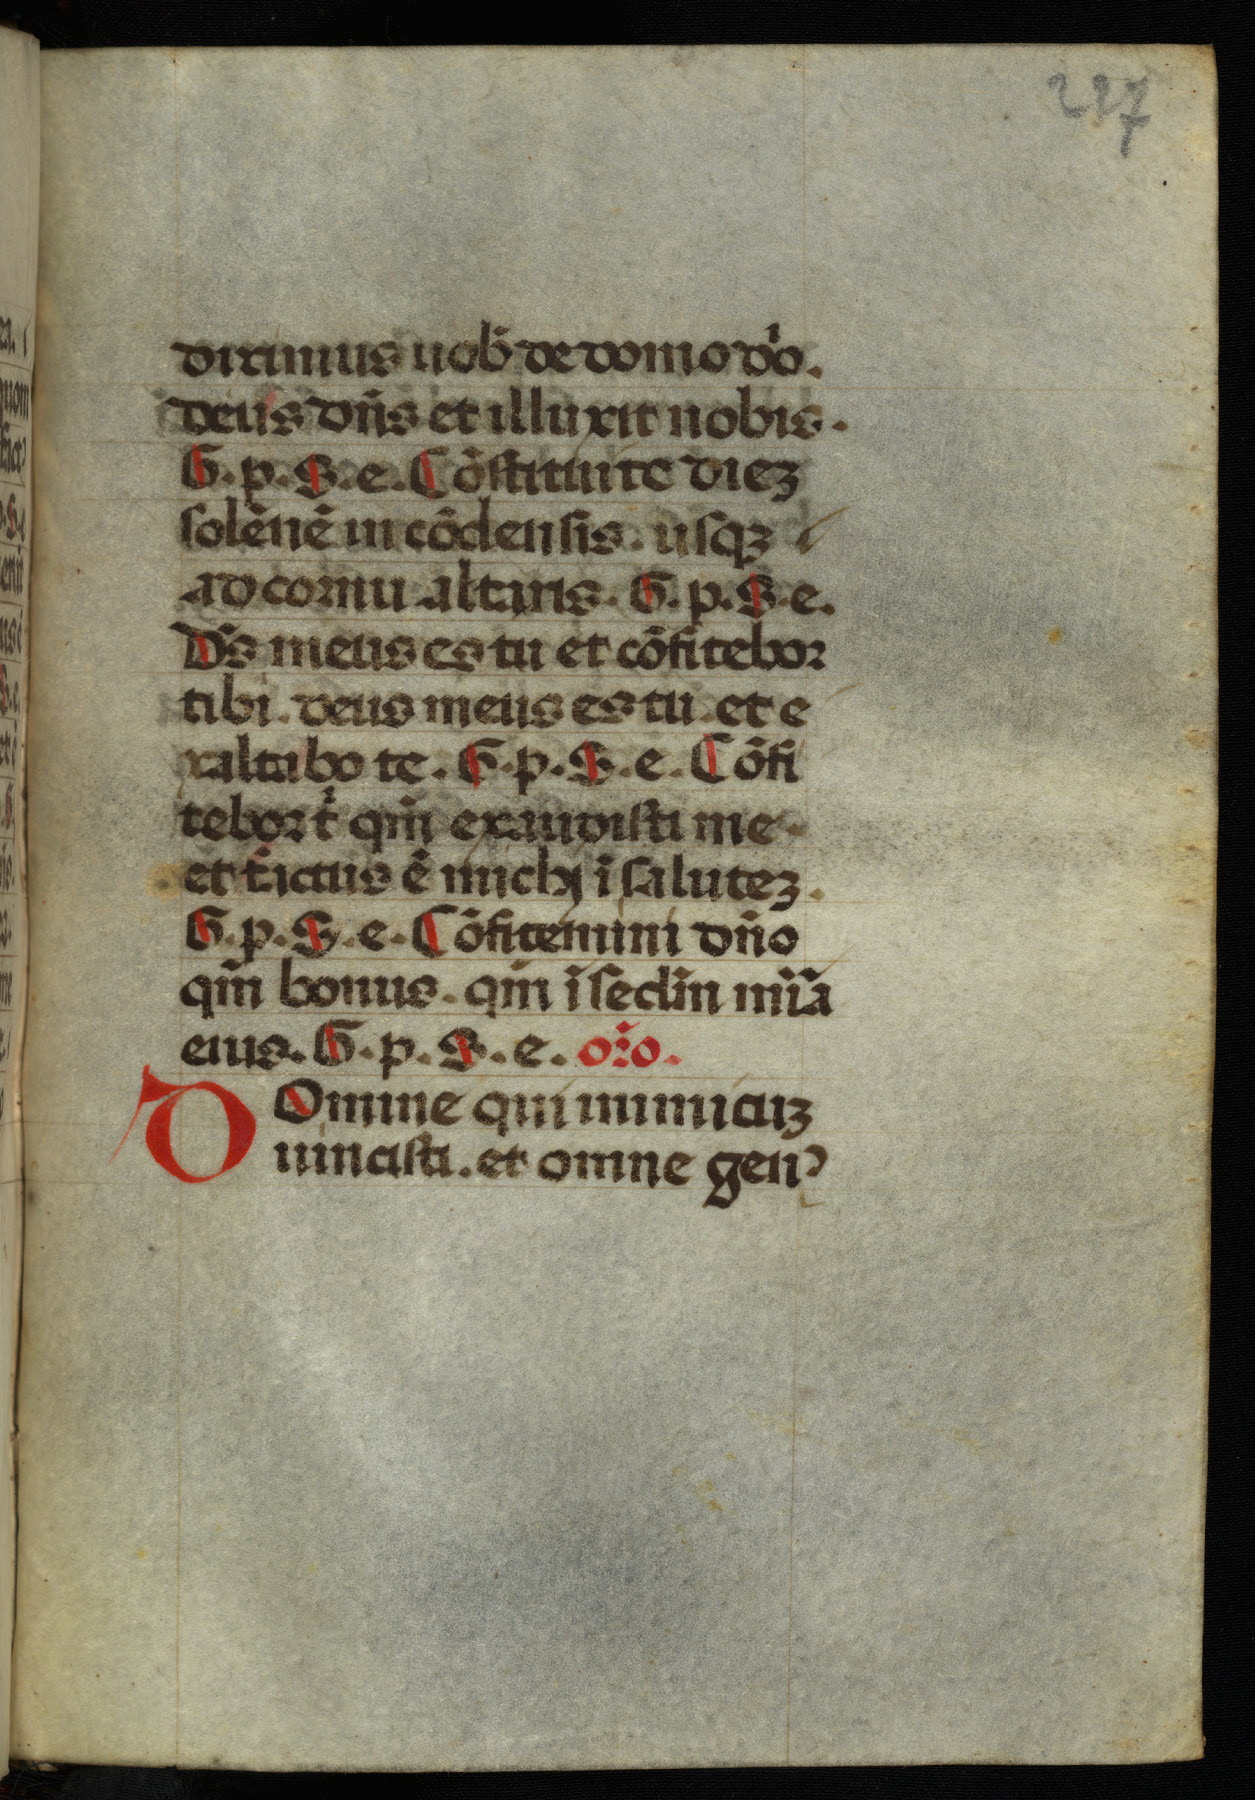 227
diximus uob̄ de domo dn̄i.
deus dn̄s et illuxit nobis.
G. p. S. e. Cōstituite diez
solēnē in cōdensis. usqz
ad cornu altaris. G. p. S. e.
Ds̄ meus es tu et cōfitebor
tibi. deus meus es tu. et e
xaltabo te. G. p. S. e. Cōfi
tebor tⁱ qm̄ exaudisti me
et fc̄tus ē michi ī salutez.
G. p. S. e. Cōfitemini dn̄o
qm̄ bonus. qm̄ ī sec̄lm mīa
eius. G. p. S. e. or̄o.
DOmine qui inimicuz
uincisti. et omne gen⁹